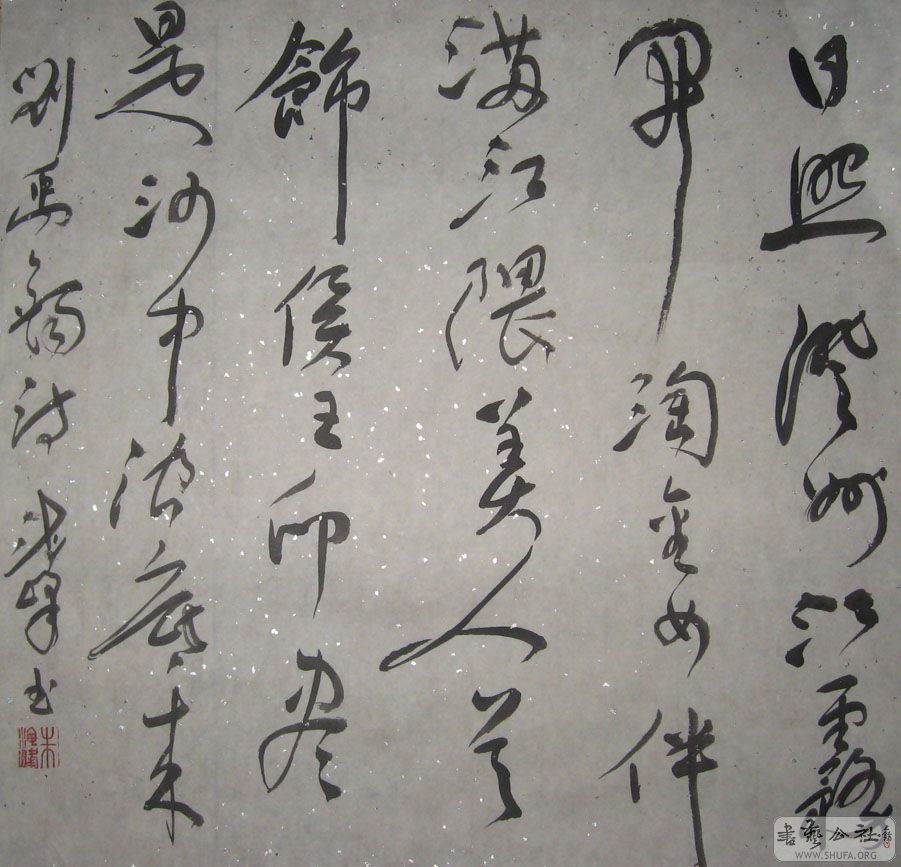 日照澄洲江霧
開淘金女伴
滿江隈美人首
飾侯王印盡
是沙中浪底来
劉禹錫詩 書
書藝公社
WWW.SHUFA.ORG